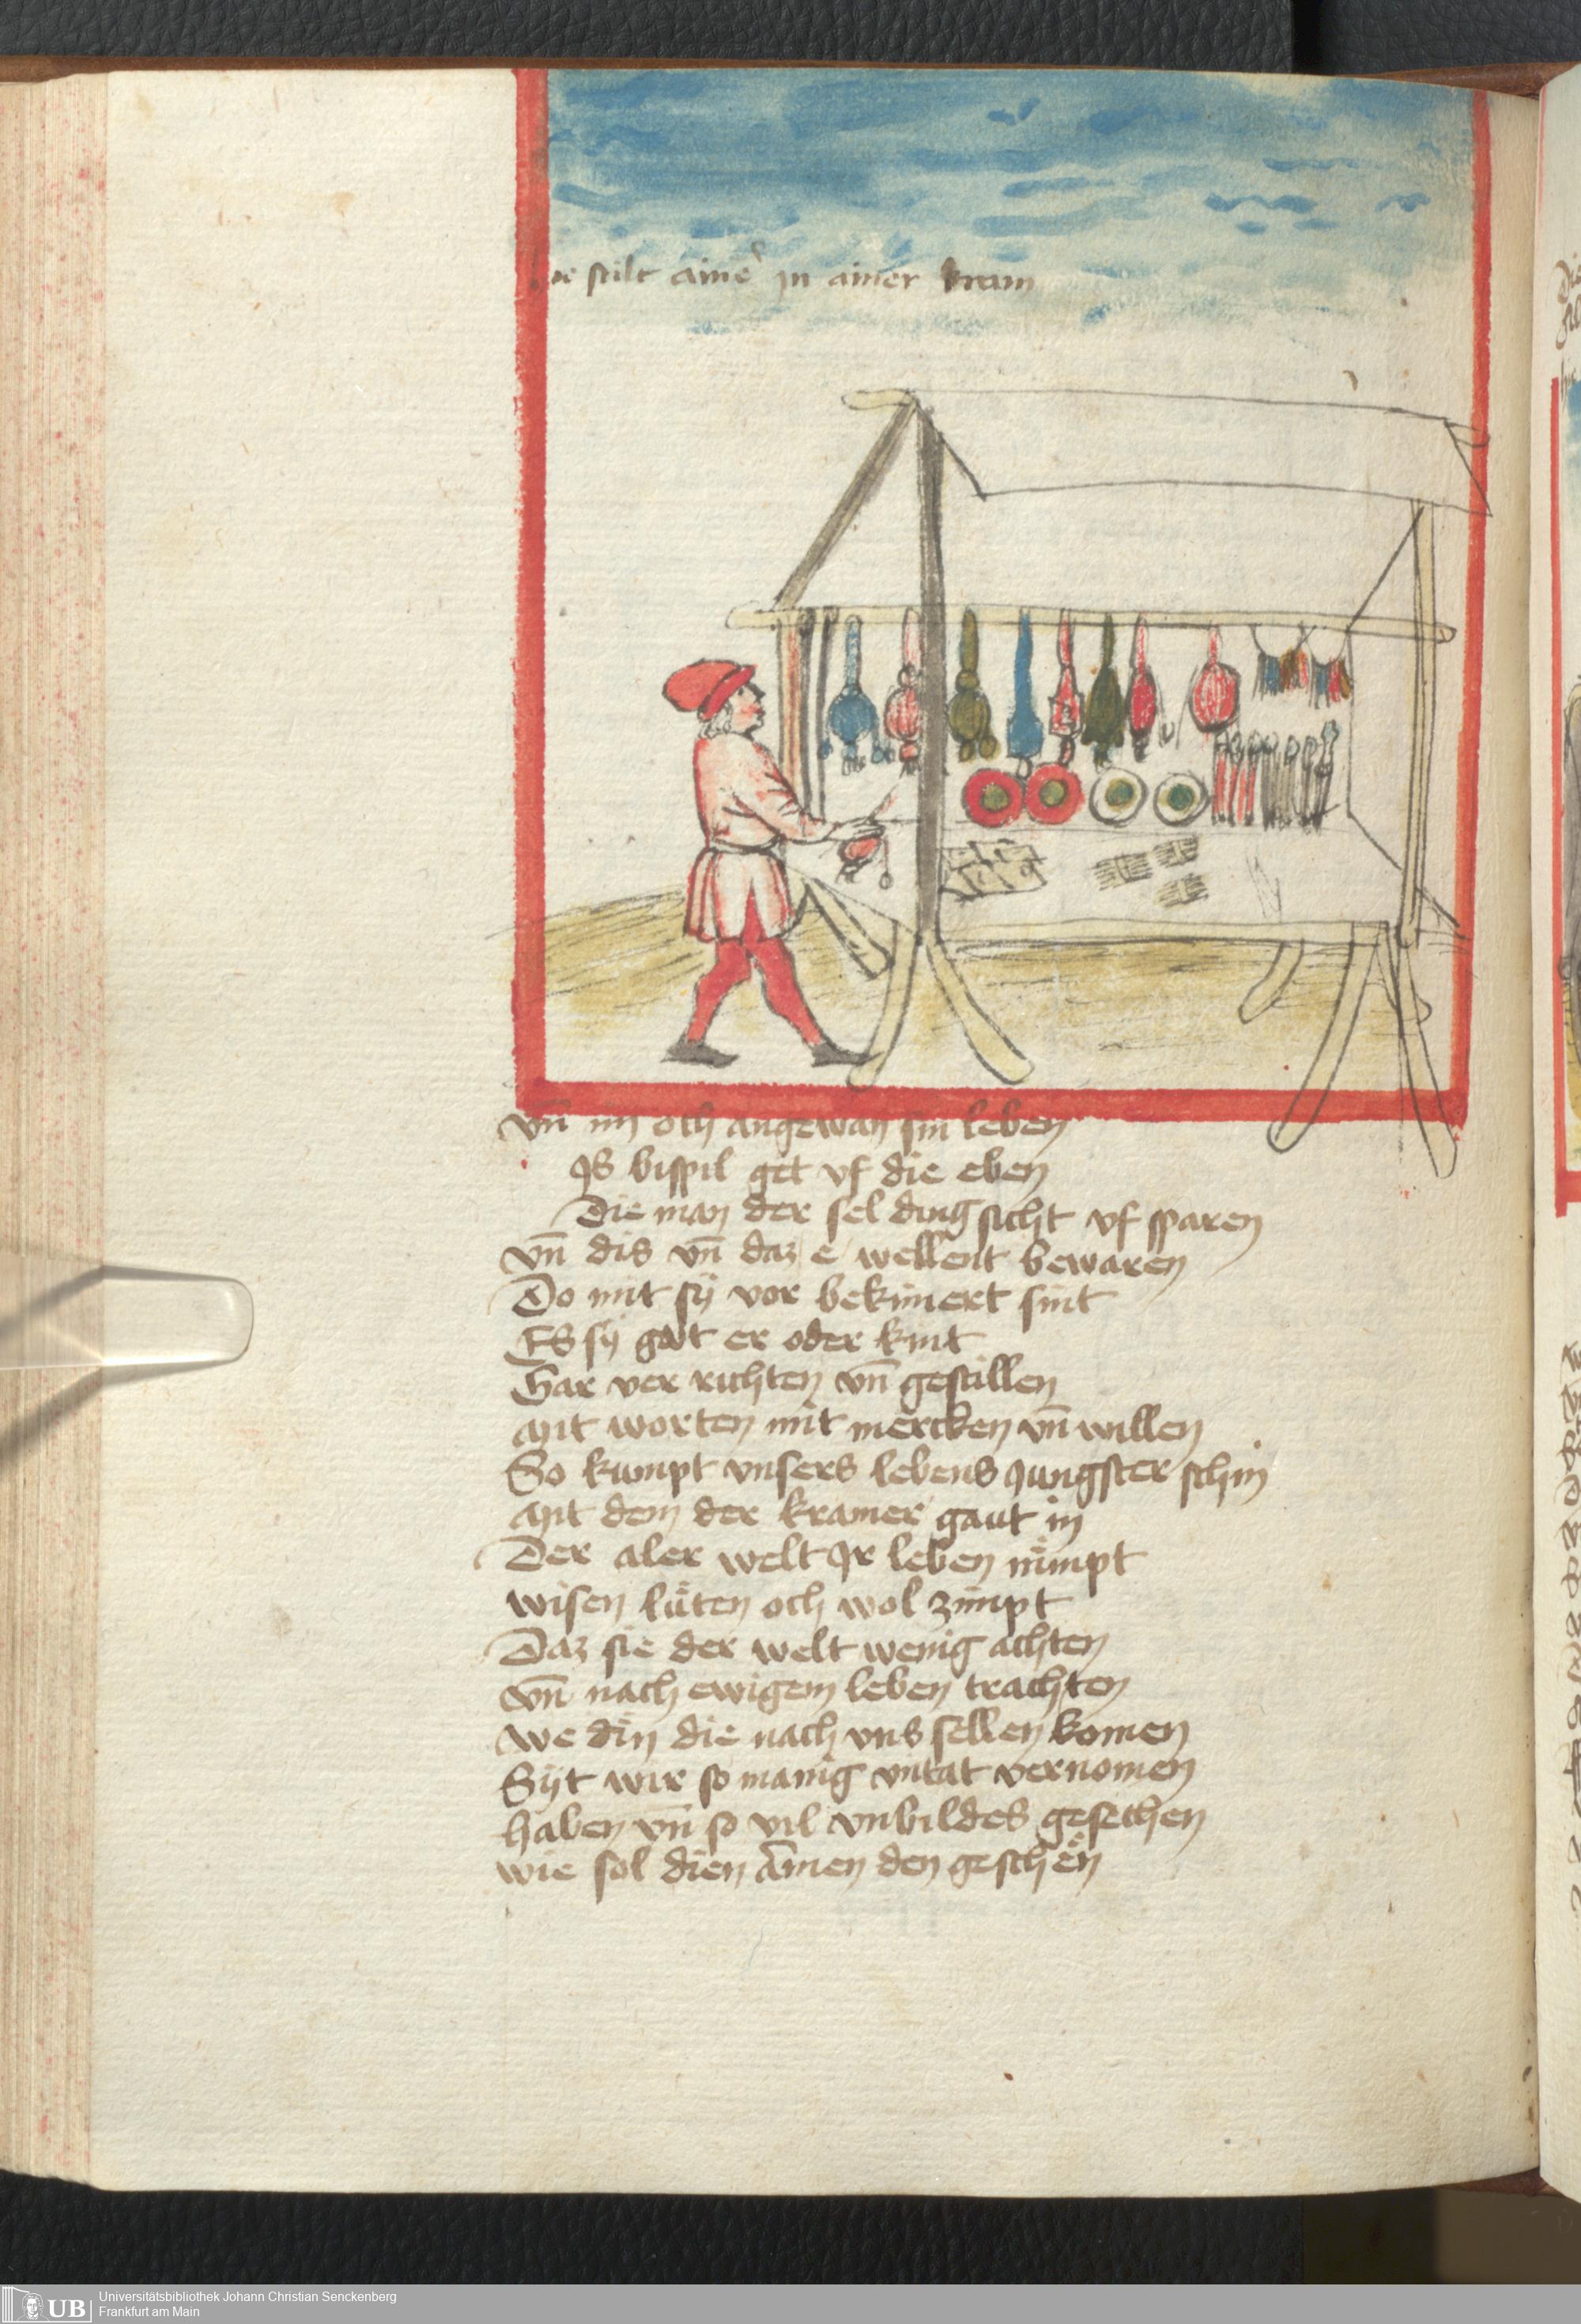 stilt aine in ainer kram
vn̄ im och angewan sin leben
Js bispil get vf die eben
Die man der sel ding sicht vf sparen
vn̄ dis vn̄ daz e wellent bewaren
Do mit sÿ vor bekimert sint
Es sÿ gůt er oder kint
Gar ver richten vn̄ gestillen
Mit worten mit mercken vn̄ willen
So kumpt vnsers lebens jungster schin
Mit dem der kramer gaut in
Der aler welt Jr leben nimpt
wisen lüten och wol zimpt
Daz sie der welt wenig achten
vn̄ nach ewigem leben trachten
we din die nach vns sellen komen
Sÿt wir so manig vntat vernomen
haben vn̄ so vil vnbildes gesechen
wie sol dien armen den geschen
UB
Universitätsbibliothek Johann Christian Senckenberg
Frankfurt am Main